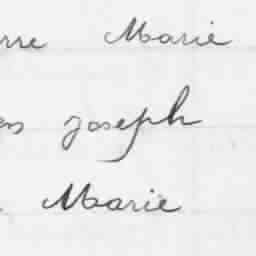 rre Marie
en joseph
Marie